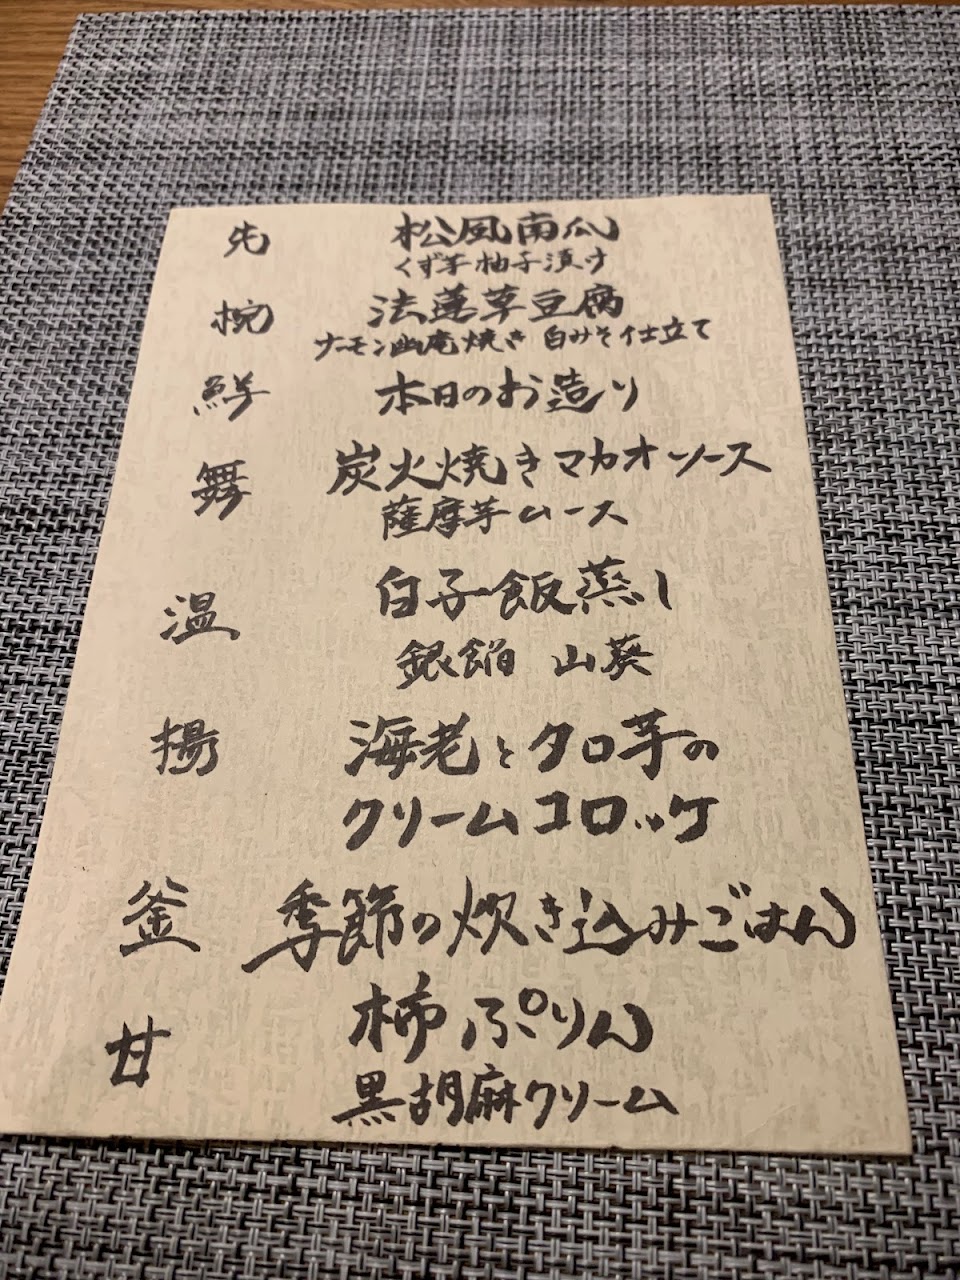 先 松風南瓜
くず芋柚子漬け
椀 法蓮草豆腐
サーモン幽庵焼き 白みそ仕立て
鮮 本日のお造り
舞 炭火焼きマカオソース
薩摩芋ムース
温 白子飯蒸し
銀餡 山葵
揚 海老とタロ芋の
クリームコロッケ
釜 季節の炊き込みごはん
甘 柿ぷりん
黒胡麻クリーム